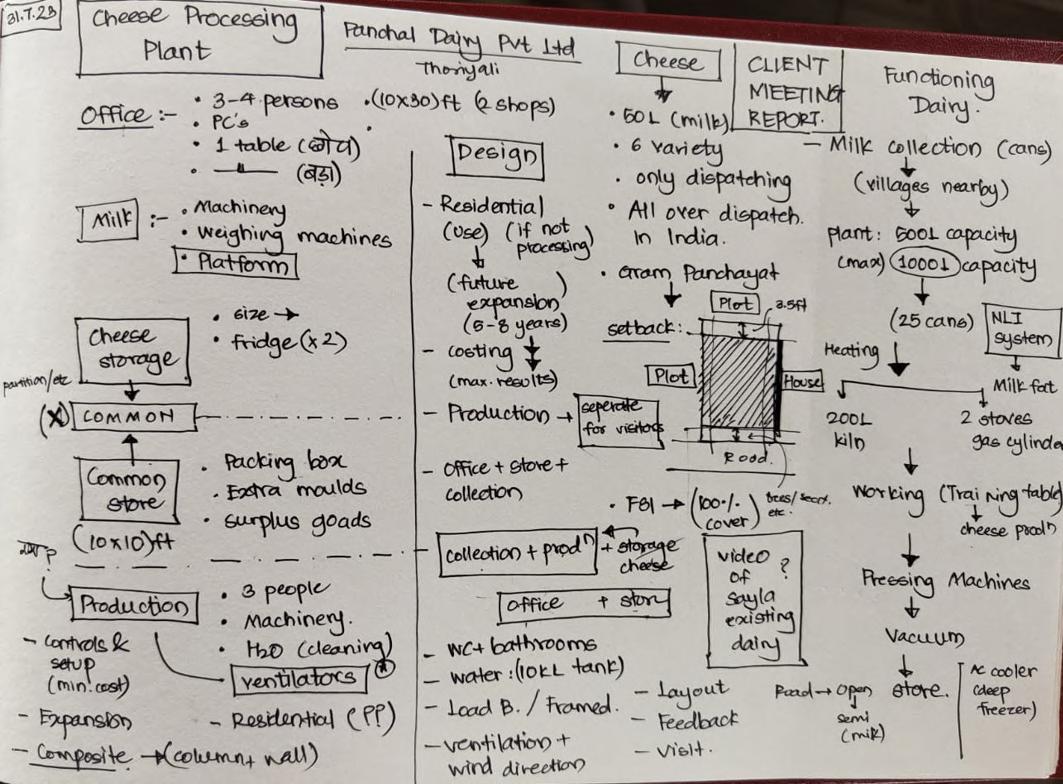 31.7.23
Cheese Processing
Plant
Panchal Dairy Pvt Ltd
Thoriyali
Office :-
• 3-4 persons
• (10x30)ft (2 shops)
• PC's
• 1 table
• (बड़ा)
Milk :-
• Machinery
• weighing machines
• Platform
Cheese
storage
• size →
• fridge (x2)
partition/etc
(X) COMMON
Common
store
(10x10)ft
• Packing box
• Extra moulds
• surplus goads
Production
• 3 people
• Machinery.
• H2O (cleaning)
ventilators
- controls &
setup
(min. cost)
- Expansion
- Residential (PP)
- Composite → (column + wall)
Design
- Residential
(use) (if not
processing)
(future
expansion)
(5-8 years)
- costing
(max. results)
- Production → seperate
for visitors
- Office + store +
collection
collection + prodn + storage
cheese
office + stor
- WC + bathrooms
- water : (10KL tank)
- Load B. / Framed.
- ventilation +
wind direction
- Layout
- Feedback
- Visit.
Cheese
• 50L (milk)
• 6 variety
• only dispatching
• All over dispatch.
In India.
• Gram Panchayat
setback:
Plot
3.5ft
Plot
House
Road.
• FSI → (100%
cover)
etc.
video ?
of
sayla
existing
dairy
CLIENT
MEETING
REPORT.
Functioning
Dairy.
- Milk collection (cans)
(villages nearby)
plant: 500L capacity
(max) 1000L capacity
(25 cans)
NLI
system
Heating
Milk fat
200L
kiln
2 stoves
gas cylinde
Working (Training table)
cheese prodn
Pressing Machines
Vacuum
store.
Road → Open
semi
(milk)
AC cooler
(deep
freezer)